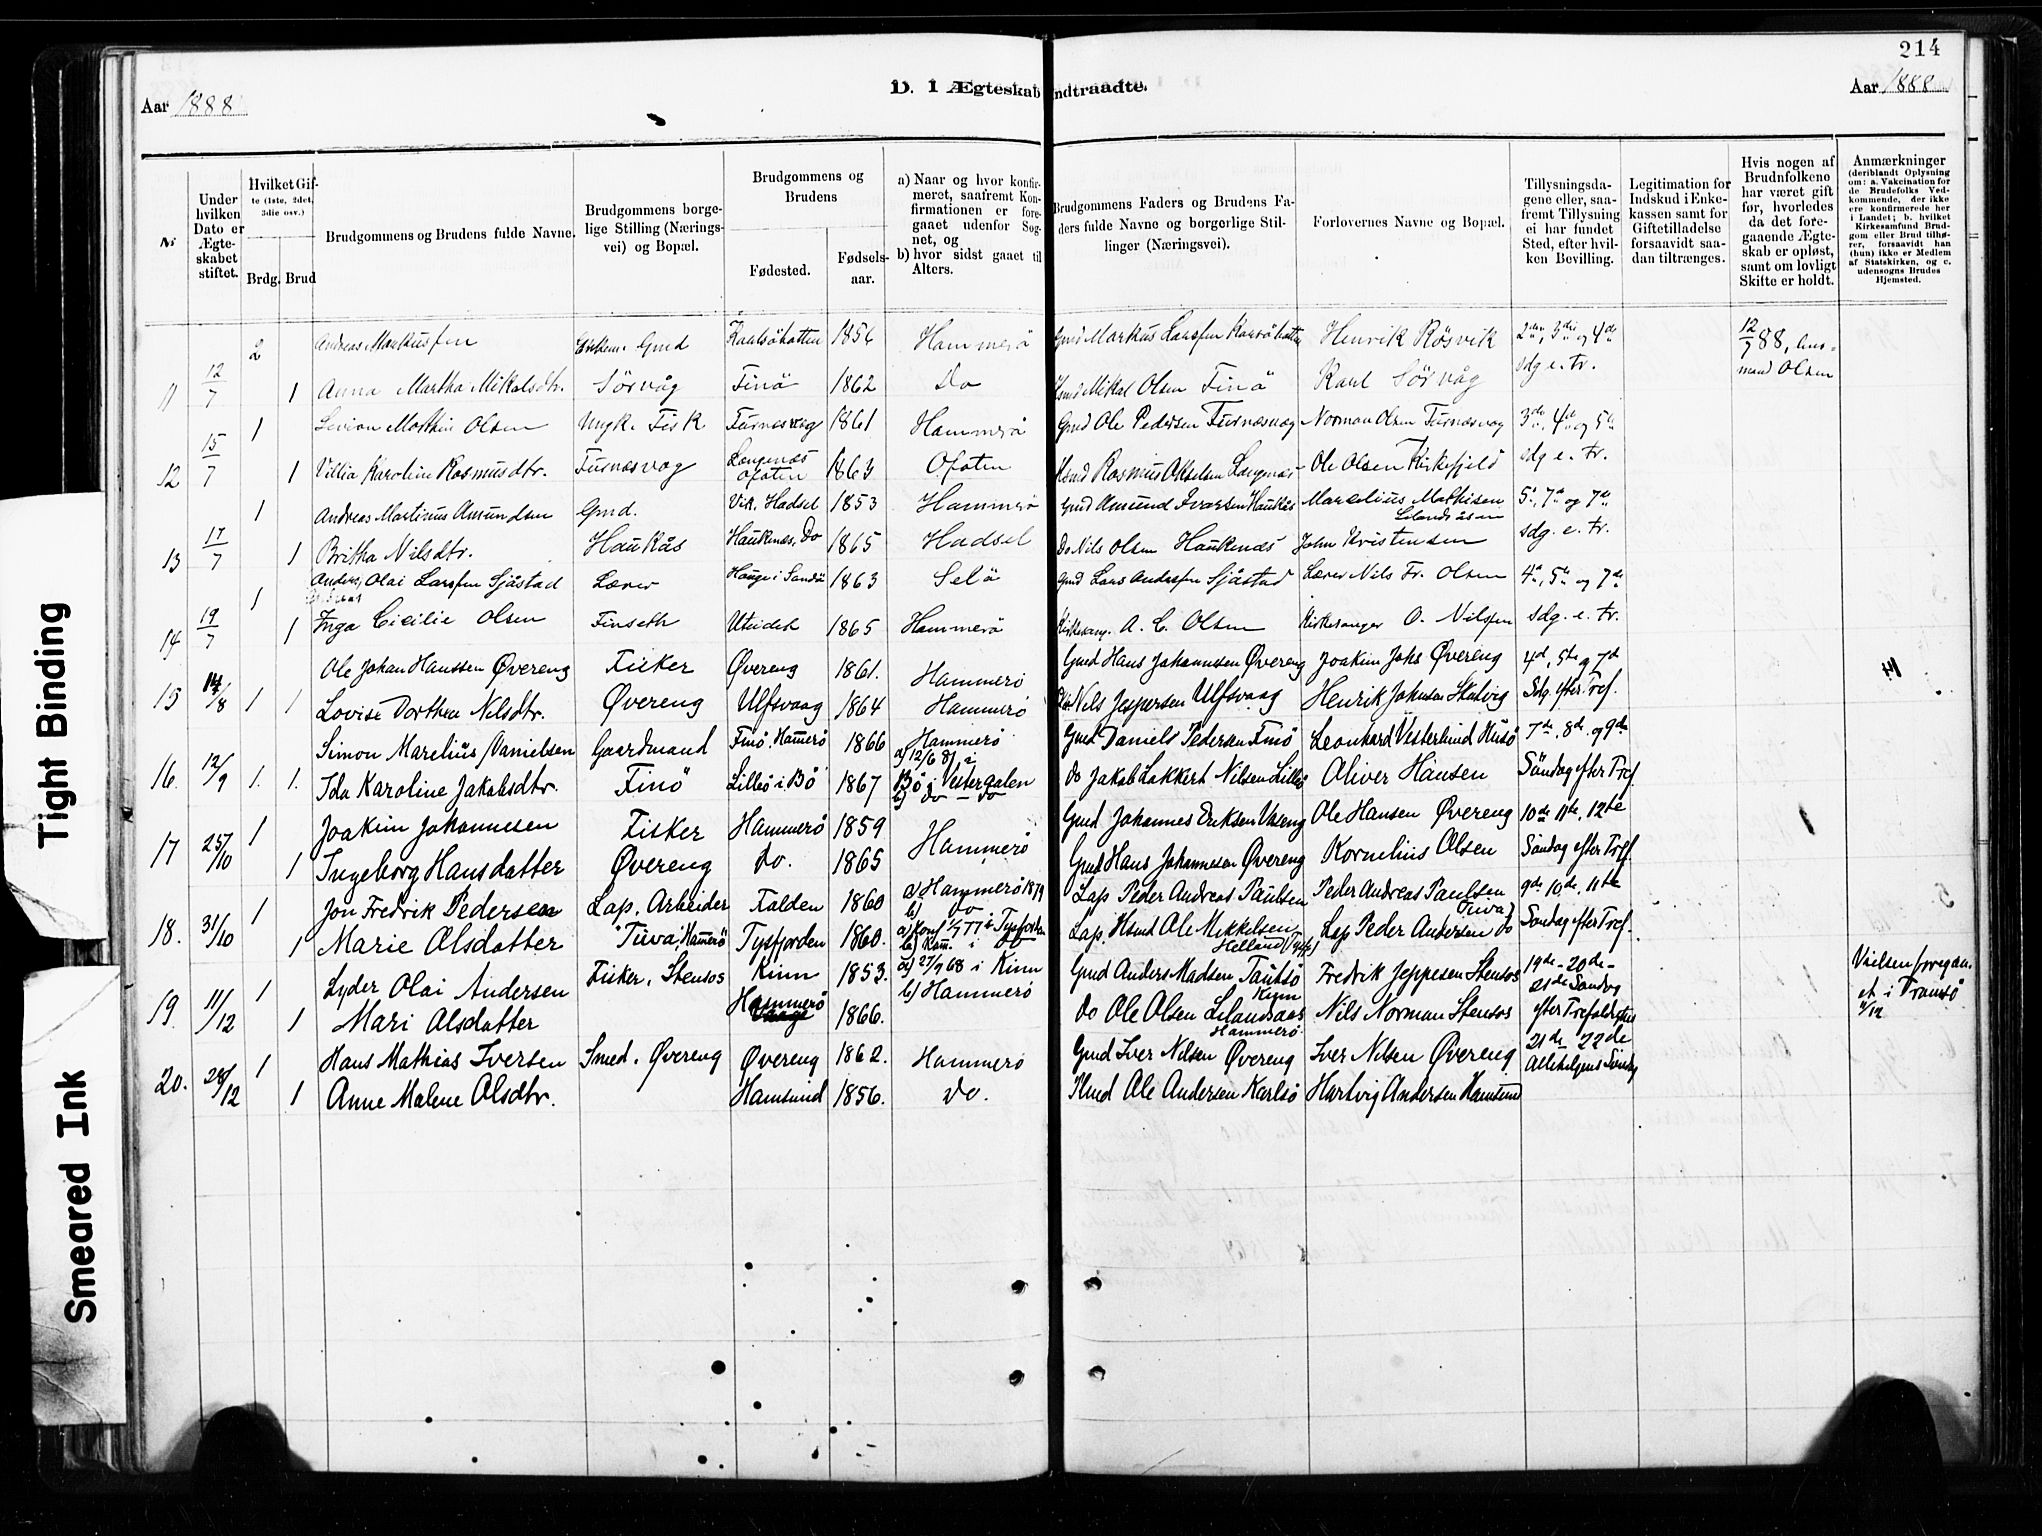 214
D. 1 Ægteskab Indtraadte.
Aar 1888
Aar 1888
No
Under hvilken Dato er Ægteskabet stiftet.
Hvilket Gifte (1ste, 2det, 3die osv.)
Brdg. Brud
Brudgommens og Brudens fulde Navne.
Brudgommens borgelige Stilling (Næringsvei) og Bopæl.
Brudgommens og Brudens
Fødested.
Fødselsaar.
a) Naar og hvor konfirmeret, saafremt Konfirmationen er foregaaet udenfor Sognet, og
b) hvor sidst gaaet til Alters.
Brudgommens Faders og Brudens Faders fulde Navne og borgerlige Stillinger (Næringsvei).
Forlovernes Navne og Bopæl.
Tillysningsdagene eller, saafremt Tillysning ei har fundet Sted, efter hvilken Bevilling.
Legitimation for Indskud i Enkekassen samt for Giftetilladelse forsaavidt saadan tiltrænges.
Hvis nogen af Brudnfolkene har været gift før, hvorledes da det foregaaende Ægteskab er opløst, samt om lovligt Skifte er holdt.
Anmærkninger (deriblandt Oplysning om: a. Vakcination for de Brudefolks Vedkommende, der ikke ere konfirmerede her i Landet; b. hvilket Kirkesamfund Brudgom eller Brud tilhører, forsaavidt han (hun) ikke er Medlem af Statskirken, og c. udensogns Brudes Hjemsted.
2 Andreas Markussen Enkem. Gmd Kaalsöhatten 1854 Hammerö Gmd Markus Larssen Henrik Rösvik 2den, 3die og 4de 12/7 88,
11 12/7 1 Anna Martha Mikalsdtr. Sörvåg Finö 1862 Do Hsmd Mikal Olsen Finö Karl Sörvåg sdg e. tr. Olsen
1 Martin Olsen Ungk. Fisk Furnæsvåg 1861 Hammerö Gmd Ole Pedersen Furnæsvåg Norman Olsen Furnæsvag 3de, 4de og 5te
12 15/7 1 Villia Karolin Rasmusdtr. Furnæsvag Langenæs Ofoten 1863 Ofoten Hsmd Rasmus Langenæs Ole Olsen Kirkefjeld sdg e. tr.
1 Andreas Martinus Amundsen Gmd. Vik, Hadsel 1853 Hammerö Gmd Amund Ivarsen Haukås Marcelius Mathisen Lilandsåsen 5te, 7de og 7de
13 17/7 1 Britha Nilsdtr. Haukås Haukenæs, Do 1865 Hadsel Do Nils Olsen Haukenæs John Kristensen sdg. e. tr.
1 Anders Olai Larssen Sjåstad Lærer Hauge i Sandö 1863 Selö Gmd Lars Anderssen Sjåstad Lærer Nils Fr. Olsen 4de, 5te og 7de
14 19/7 1 Inga Cicilie Olsen Finseth Uteidet 1865 Hammerö Kirkesang. A. C. Olsen Kirkesanger O. Nilssen sdg. e. tr.
Ole Johan Hanssen Øvereng Fisker Øvereng 1861. Hammerö Gmd Hans Johannesen Øvereng Joakim Johs Øvereng 4d, 5te og 7d
15 14/8 1 1 Lovise Dorthea Nilsdtr. Øvereng Ulfsvaag 1864 Hammerö Nils Jespersen Ulfsvaag Henrik Johnsen Sdg. efter Tref.
Simon Marelius Danielsen Gaardmand Finö, Hamerö 1866 Hammerö Gmd Daniels Pedersen Finö Leonhard Vesterlund Husö 7de, 8de, og 9de
16. 12/9 1. 1. Ida Karoline Jakobsdtr. Finö Lillesö i Bö 1867 a) 12/6 81 i Bö i Vesteraalen b) do - do Do Jakob Lakkert Nilsen Oliver Hansen Söndag efter Tref.
1 Joakim Johannesen Fisker Hammerö 1859 Hammerö Gmd Johannes Eriksen Ole Hansen Øvereng 10de 11te, 12te
17 25/10 1 Ingeborg Hansdatter Øvereng Do. 1865 Gmd Hans Johannesen Øvereng Kornelius Olsen Söndag efter Tref.
1 Jon Fredrik Pedersen Lap. Arbeider Falden 1860 a) Hammerö 1879 b) do Lap Peder Andreas Paulsen Peder Andreas Paulsen Tuva 9de 10de, 11te
18. 31/10 1 Marie Olsdatter Tuva, Hamerö Tysfjorden 1860. a) Konf 1/7 77 i Tysfjorden b) Kom. i do Lap. Hsmd Ole Mikkelsen Helland (Tysfj) Lap Peder Andersen do Söndag efter Tref.
1 Lyder Olai Andersen Fisker, Stensos Kinn 1853. a) 27/9 68 i Kinn b) Hammerö Gmd Anders Madsen Tautsö Kinn Fredrik Jeppesen Stensos 19de - 20de - 21de Söndag Vielsen foregaaet i Tromsö 11/12
19. 11/12 1 Mari Olsdatter Hammerö 1866. Do Ole Olsen Lilandsaas Hammerö. Nils Norman Stensos efter Trefoldighed
1 Hans Mathias Iversen Smed. Øvereng Øvereng 1862. Hammerö Gmd Iver Nilsen Øvereng Iver Nilsen Øvereng 21de 22de Allehelgens Söndag
20. 28/12 1 Anne Malene Olsdtr. Hamsund 1856. Do. Hmd Ole Andersen Karlsö Hartvig Andersen Hamsund
Tight Binding
Smeared Ink